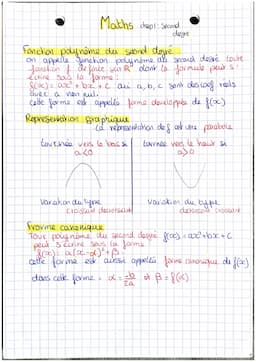 Maths chap1: second
degré
Fonction polynôme du second degré
on appelle fonction polynôme du second degré toute
fonction f définie sur ℝ dont la formule peut s'
écrire sous la forme :
f(x) = ax² + bx + c où a, b, c sont des coef réels
avec a non nul.
cette forme est appelée forme développée de f(x)
Représentation graphique
La représentation de f est une parabole
tournée vers le bas si
a<0
tournée vers le haut si
a>0
Variation du type
croissant decroissant
Variation du type
decroissant croissant
Forme canonique
Tout polynôme du second degré f(x) = ax² + bx + c
peut s'écrire sous la forme
f(x) = a(x-α)² + β
cette forme est aussi appelée forme canonique de f(x)
dans cette forme = α = -b/2a et β = f(α)